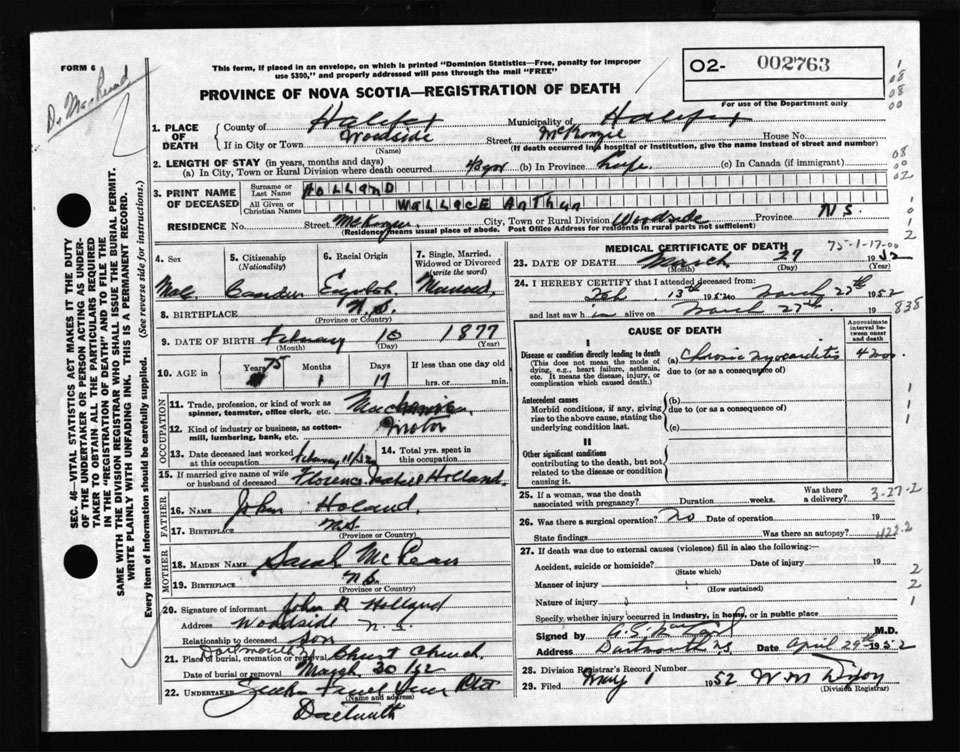 FORM 6
This form, if placed in an envelope, on which is printed "Dominion Statistics—Free, penalty for improper
use $300," and properly addressed will pass through the mail "FREE"
PROVINCE OF NOVA SCOTIA—REGISTRATION OF DEATH
O2- 002763
For use of the Department only
SEC. 46—VITAL STATISTICS ACT MAKES IT THE DUTY
OF THE UNDERTAKER OR PERSON ACTING AS UNDER-
TAKER TO OBTAIN ALL THE PARTICULARS REQUIRED
IN THE "REGISTRATION OF DEATH" AND TO FILE THE
SAME WITH THE DIVISION REGISTRAR WHO SHALL ISSUE THE BURIAL PERMIT.
WRITE PLAINLY WITH UNFADING INK. THIS IS A PERMANENT RECORD.
Every item of information should be carefully supplied. (See reverse side for instructions.)
1. PLACE OF DEATH
County of Halifax Municipality of Halifax
If in City or Town Woodside Street McKenzie House No.
(Name) (If death occurred in a hospital or institution, give the name instead of street and number)
2. LENGTH OF STAY (in years, months and days)
(a) In City, Town or Rural Division where death occurred (b) In Province Life (c) In Canada (if immigrant)
3. PRINT NAME OF DECEASED
Surname or Last Name HOLLAND
All Given or Christian Names WALLACE ARTHUR
RESIDENCE No. Street McKenzie City, Town or Rural Division Woodside Province N.S.
(Residence means usual place of abode. Post Office Address for residents in rural parts not sufficient)
4. Sex Male
5. Citizenship (Nationality)
6. Racial Origin English
7. Single, Married, Widowed or Divorced (write the word) Married
8. BIRTHPLACE N.S.
(Province or Country)
9. DATE OF BIRTH February 10 1877
(Month) (Day) (Year)
10. AGE in Years 75 Months 1 Days 17 If less than one day old hrs. or min.
OCCUPATION
11. Trade, profession, or kind of work as spinner, teamster, office clerk, etc. Mechanic
12. Kind of industry or business, as cotton-mill, lumbering, bank, etc. Motor
13. Date deceased last worked at this occupation February 11/52
14. Total yrs. spent in this occupation
15. If married give name of wife or husband of deceased Florence Mabel Holland
FATHER
16. Name John Holand
17. Birthplace N.S.
(Province or Country)
MOTHER
18. MAIDEN NAME Sarah McLean
19. BIRTHPLACE N.S.
(Province or Country)
20. Signature of informant John R Holland
Address Woodside N.S.
Relationship to deceased Son
21. Place of burial, cremation or removal Dartmouth Christ Church
Date of burial or removal March 30/52
22. UNDERTAKER
(Name and address)
Dartmouth
MEDICAL CERTIFICATE OF DEATH 75-1-17-00
23. DATE OF DEATH March 27 1952
(Month) (Day) (Year)
24. I HEREBY CERTIFY that I attended deceased from:
Feb 13th 1952 to March 27th 1952
and last saw him alive on March 27th 19 838
CAUSE OF DEATH
Approximate interval between onset and death
I
Disease or condition directly leading to death
(This does not mean the mode of dying, e.g., heart failure, asthenia, etc. It means the disease, injury, or complication which caused death.)
(a) Chronic myocarditis
due to (or as a consequence of)
Antecedent causes
Morbid conditions, if any, giving rise to the above cause, stating the underlying condition last.
(b)
due to (or as a consequence of)
(c)
II
Other significant conditions
contributing to the death, but not related to the disease or condition causing it.
25. If a woman, was the death associated with pregnancy? Duration weeks. Was there a delivery? 3-27-2
26. Was there a surgical operation? No Date of operation 19
State findings Was there an autopsy? 422-2
27. If death was due to external causes (violence) fill in also the following:—
Accident, suicide or homicide? Date of injury 19
(State which)
Manner of injury
(How sustained)
Nature of injury
Specify whether injury occurred in industry, in home, or in public place
Signed by M.D.
Address Dartmouth N.S. Date April 29th 1952
28. Division Registrar's Record Number
29. Filed May 1 1952 W M Dixon
(Division Registrar)